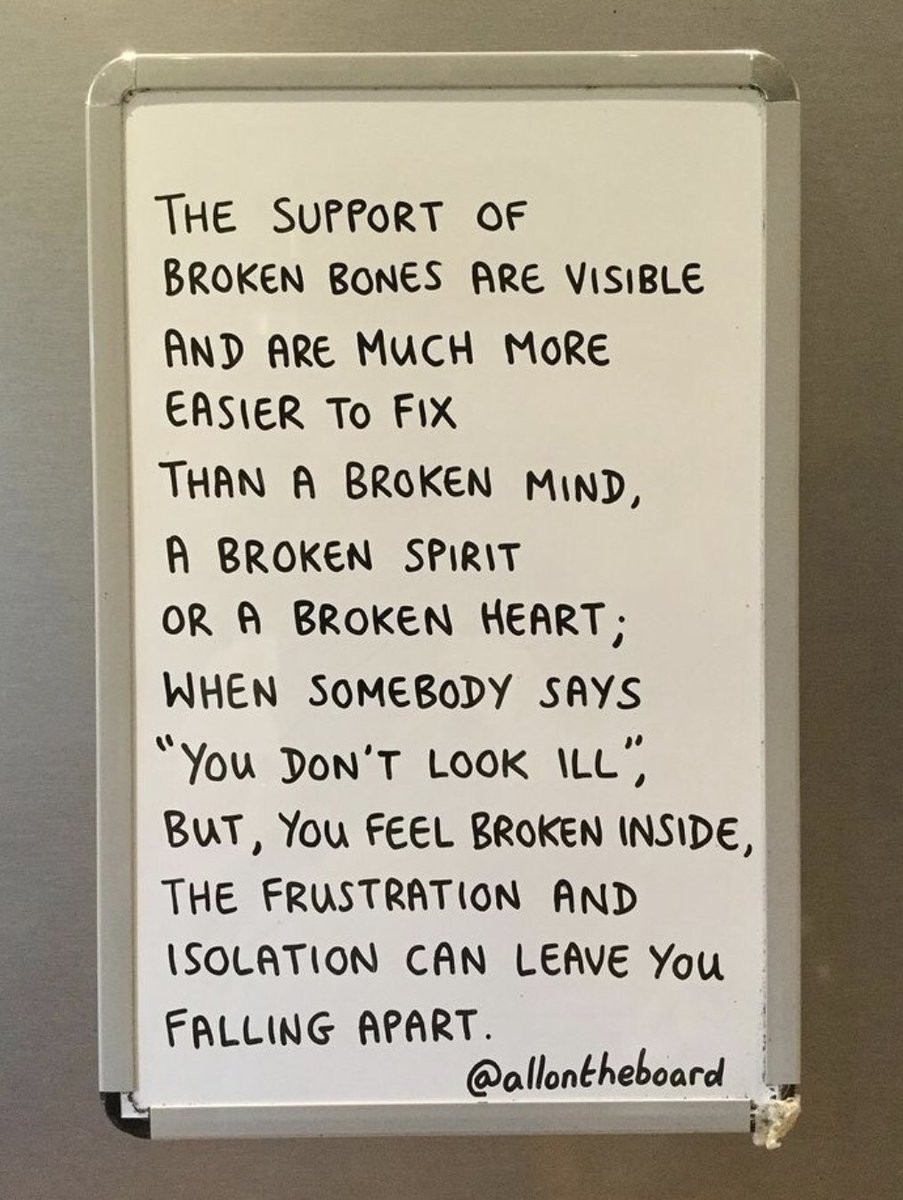 THE SUPPORT OF
BROKEN BONES ARE VISIBLE
AND ARE MUCH MORE
EASIER TO FIX
THAN A BROKEN MIND,
A BROKEN SPIRIT
OR A BROKEN HEART;
WHEN SOMEBODY SAYS
“YOU DON'T LOOK ILL”,
BUT, YOU FEEL BROKEN INSIDE,
THE FRUSTRATION AND
ISOLATION CAN LEAVE YOU
FALLING APART.
@allontheboard